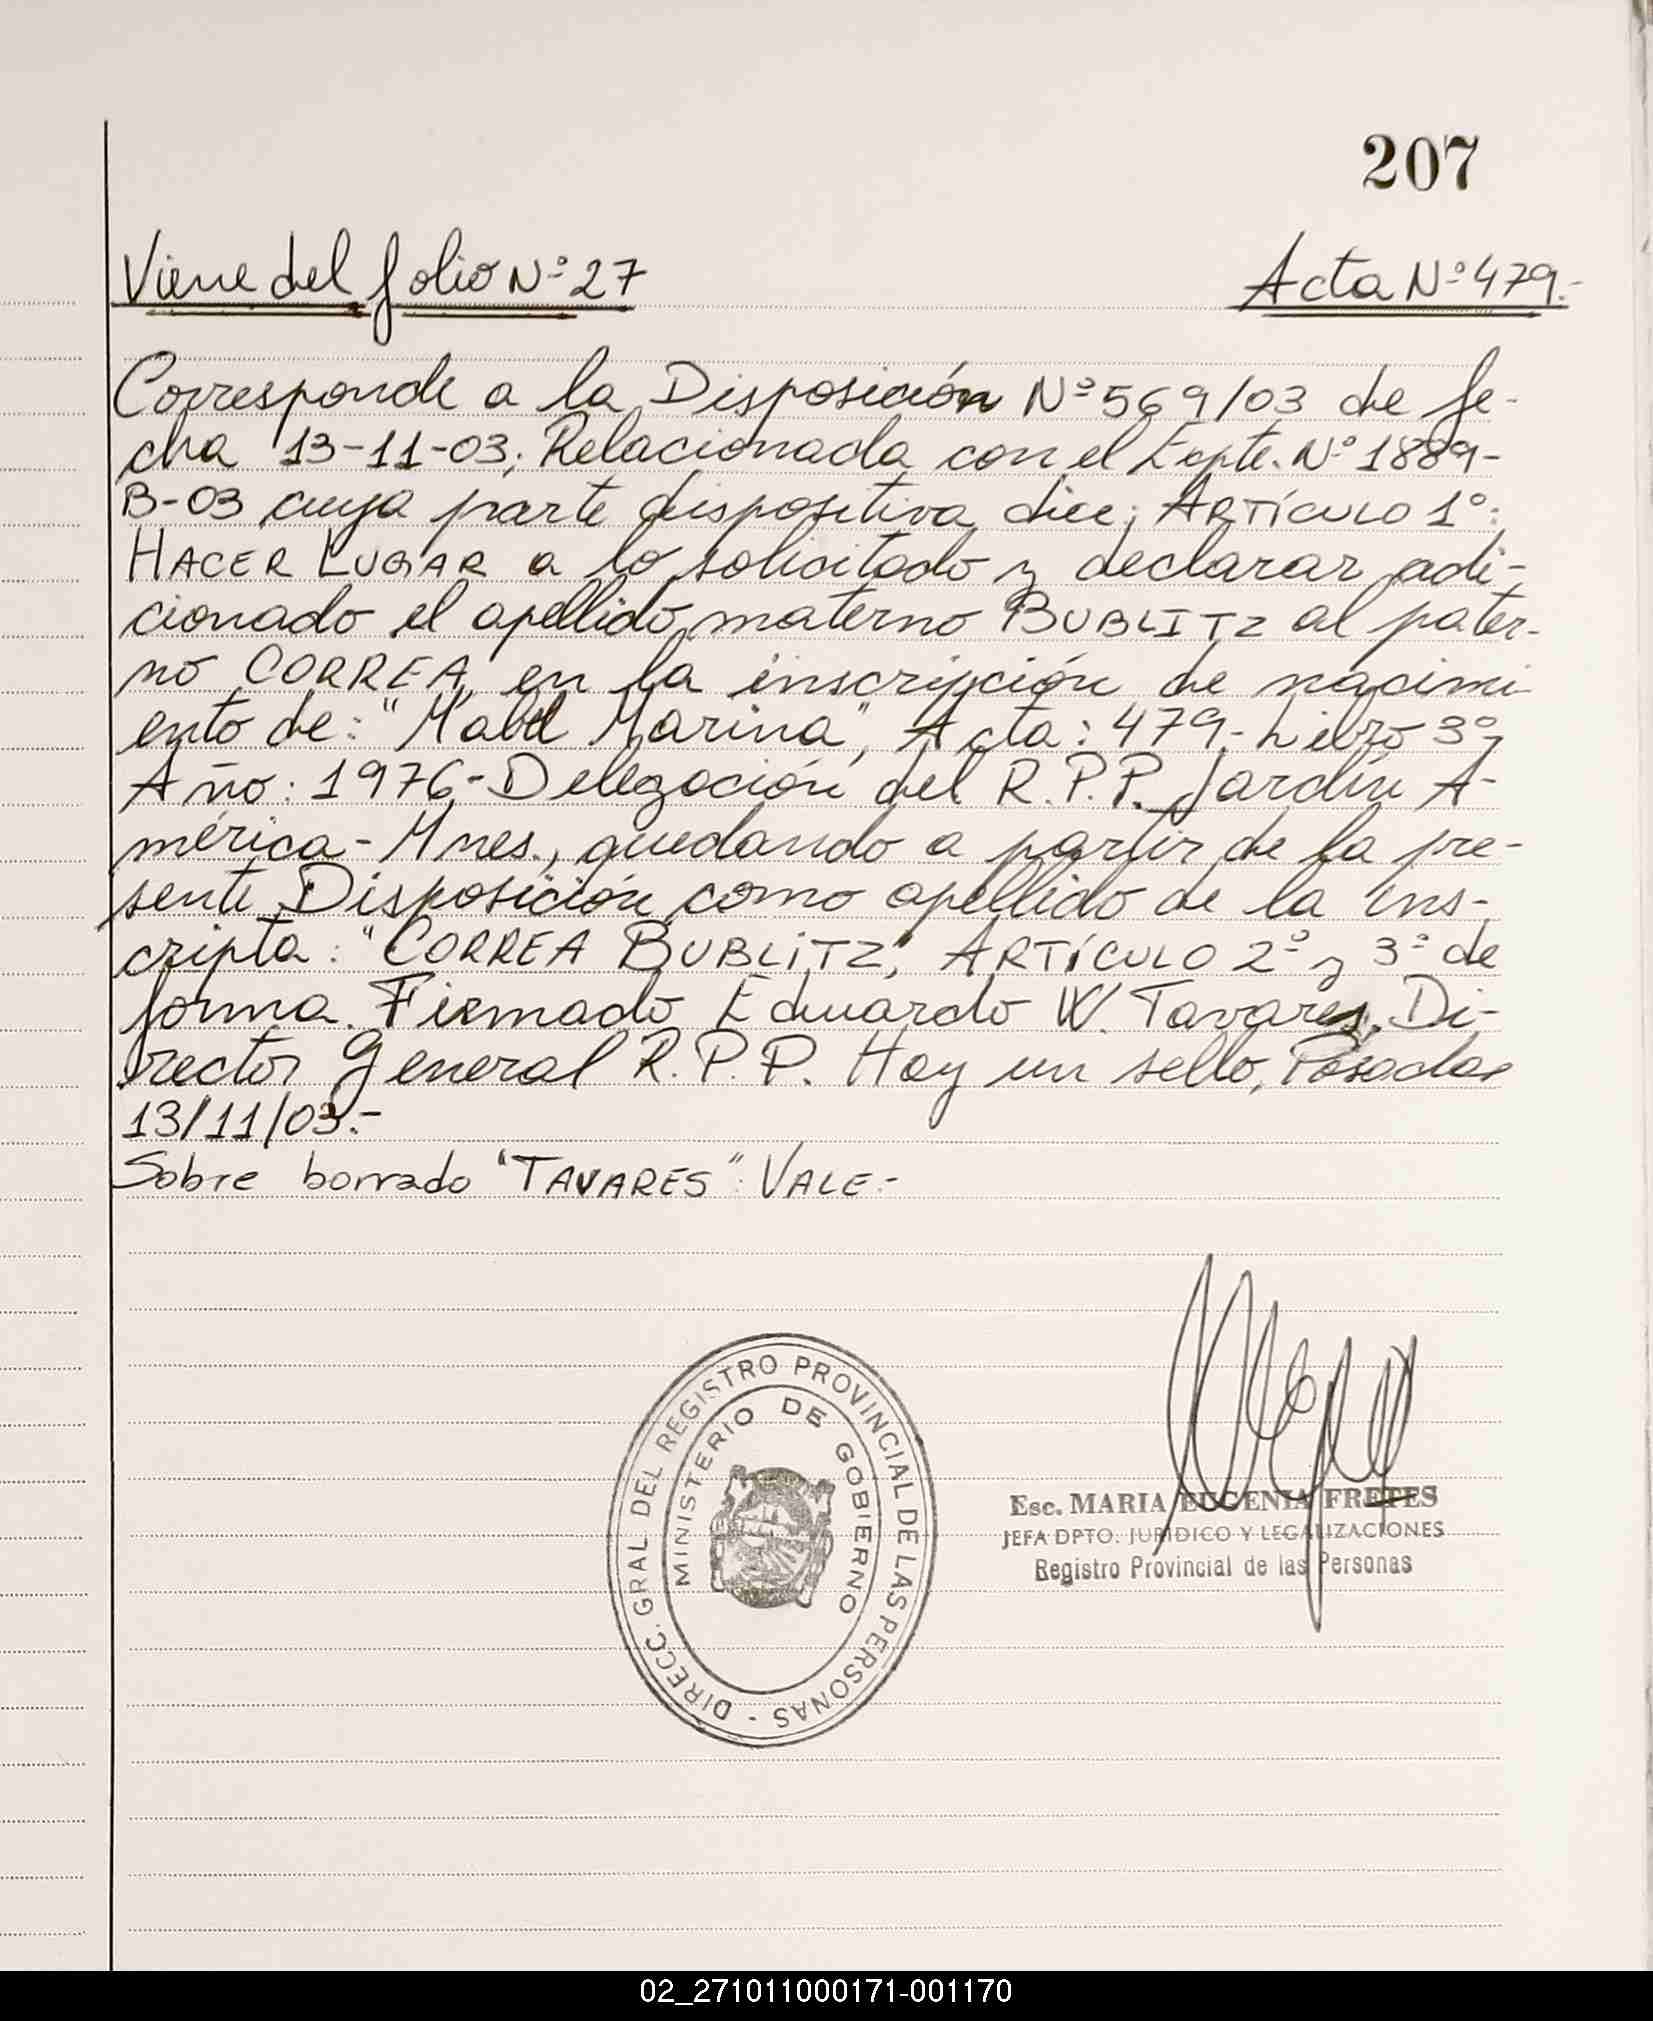 207
Viene del folio Nº 27 Acta Nº 479.-
Corresponde a la Disposición Nº 569/03 de fe-
cha 13-11-03; Relacionada con el Expte. Nº 1889-
B-03 cuya parte dispositiva dice; ARTÍCULO 1º:
HACER LUGAR a lo solicitado y declarar adi-
cionado el apellido materno BUBLITZ al pater-
no CORREA, en la inscripción de nacimi
ento de: "Mabel Marina", Acta: 479- Libro 3º,
Año: 1976- Delegación del R.P.P. Jardín A-
mérica- Mnes., quedando a partir de la pre-
sente Disposición como apellido de la ins-
cripta: "CORREA BUBLITZ", ARTÍCULO 2º y 3º de
forma. Firmado Eduardo W. Tavares, Di-
rector General R.P.P. Hay un sello, Posadas
13/11/03.-
Sobre borrado "TAVARES": VALE.-
DIRECC. GRAL DEL REGISTRO PROVINCIAL DE LAS PERSONAS -
MINISTERIO DE GOBIERNO
Esc. MARIA EUGENIA FRETES
JEFA DPTO. JURIDICO Y LEGALIZACIONES
Registro Provincial de las Personas
02_271011000171-001170